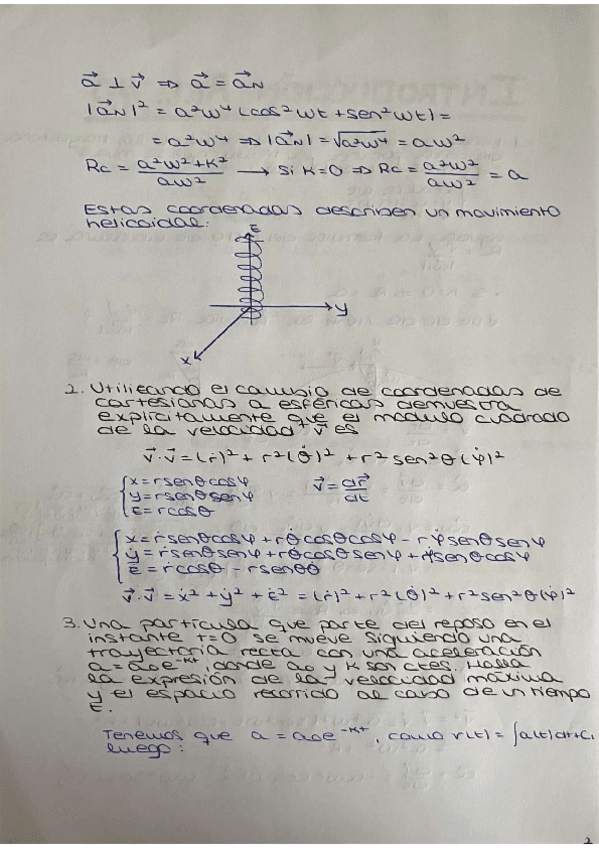 a⃗ ⊥ v⃗ ⇒ a⃗ = a⃗N
|a⃗N|² = a²w⁴ (cos²wt + sen²wt) =
= a²w⁴ ⇒ |a⃗N| = √a²w⁴ = aw²
Rc = (a²w² + K²)/(aw²) → Si K=0 ⇒ Rc = (a²w²)/(aw²) = a
Estas coordenadas describen un movimiento
helicoidal:
z
y
x
2. Utilizando el cambio de coordenadas de
cartesianas a esféricas demuestra
explícitamente que el módulo cuadrado
de la velocidad v⃗ es
v⃗·v⃗ = (ṙ)² + r²(θ̇)² + r² sen²θ(φ̇)²
x = r senθ cosφ
v⃗ = dr⃗/dt
y = r senθ senφ
z = r cosθ
ẋ = ṙ senθ cosφ + rθ̇ cosθ cosφ - rφ̇ senθ senφ
ẏ = ṙ senθ senφ + rθ̇ cosθ senφ + rφ̇ senθ cosφ
ż = ṙ cosθ - r senθ θ̇
v⃗·v⃗ = ẋ² + ẏ² + ż² = (ṙ)² + r²(θ̇)² + r² sen²θ(φ̇)²
3. Una partícula que parte del reposo en el
instante t=0 se mueve siguiendo una
trayectoria recta con una aceleración
a = a₀e^-Kt, donde a₀ y K son ctes. Halla
la expresión de la velocidad máxima
y el espacio recorrido al cabo de un tiempo
t.
Tenemos que a = a₀e^-Kt, como v(t) = ∫a(t)dt + C,
luego:
2